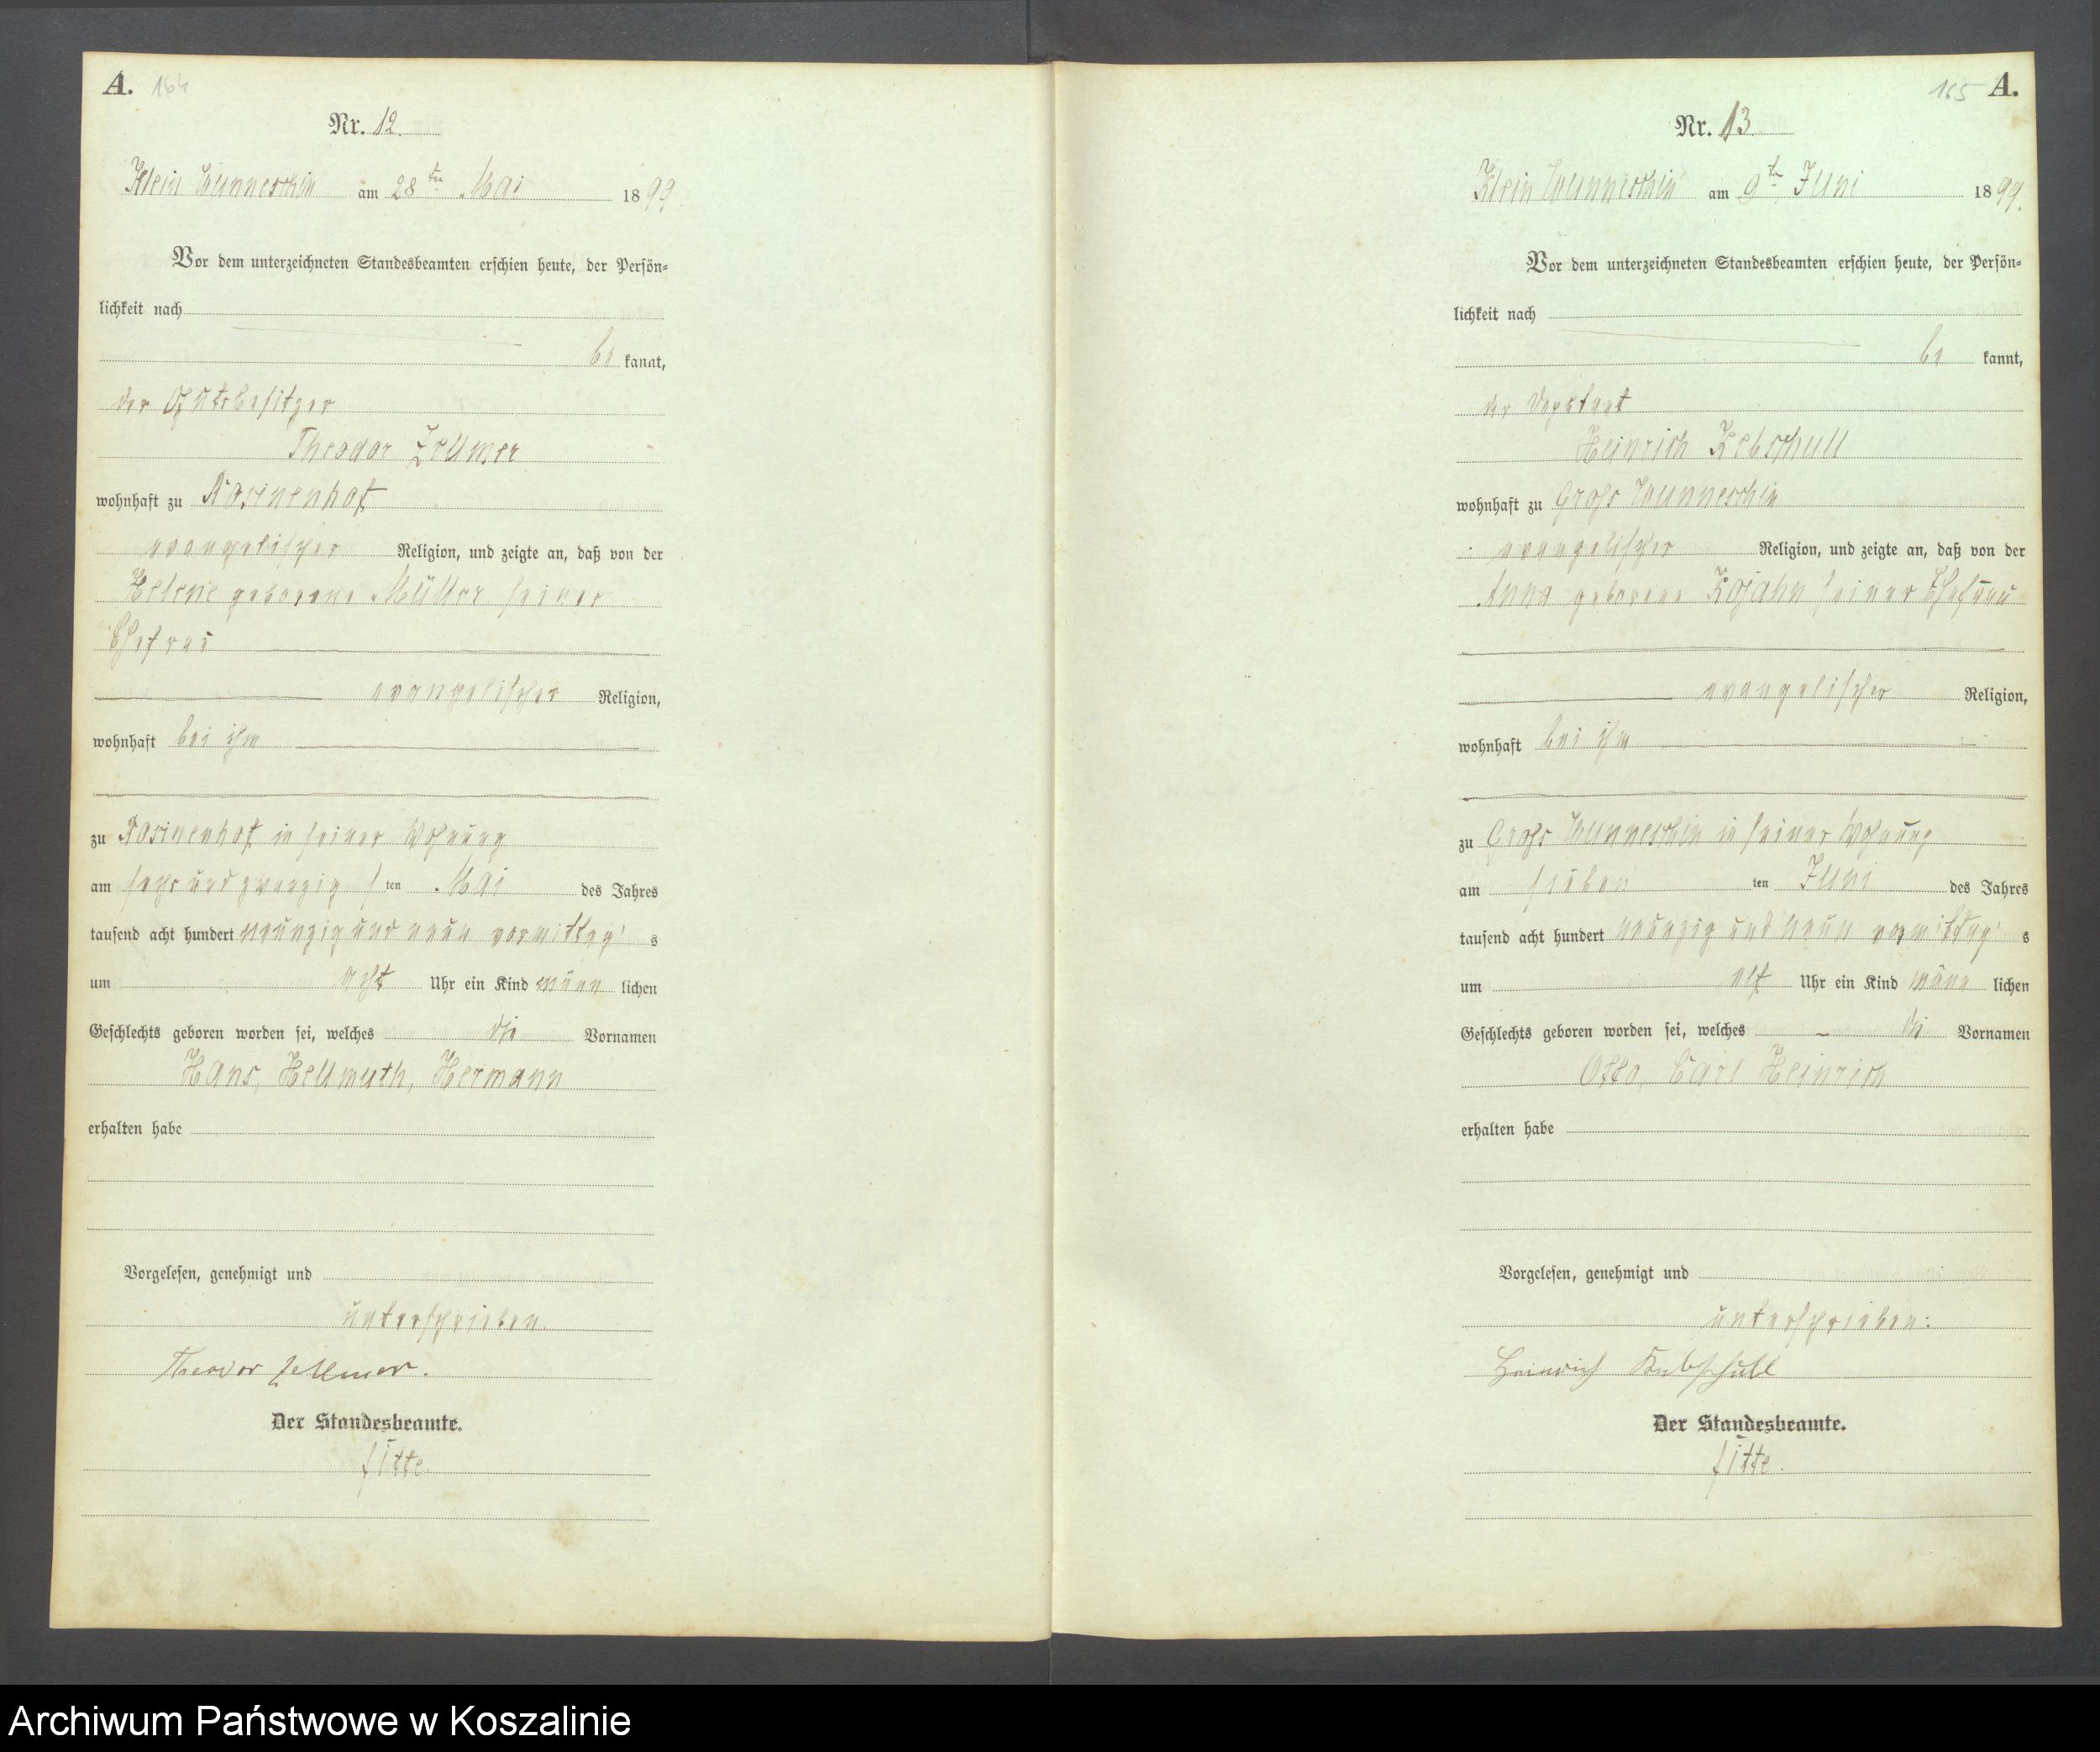 A. 164
Nr. 12.
Klein Wunneschin am 28ten Mai 1899.
Vor dem unterzeichneten Standesbeamten erschien heute, der Persön-
lichkeit nach
be kannt,
der Gutsbesitzer
Theodor Zellmer
wohnhaft zu Rosinenhof
evangelischer Religion, und zeigte an, daß von der
Helene geborene Müller seiner
Ehefrau
evangelischer Religion,
wohnhaft bei ihm
zu Rosinenhof in seiner Wohnung
am sechs und zwanzigsten Mai des Jahres
tausend acht hundert neunzig und neun vormittags
um acht Uhr ein Kind männlichen
Geschlechts geboren worden sei, welches die Vornamen
Hans, Hellmuth, Hermann
erhalten habe
Vorgelesen, genehmigt und
unterschrieben.
Theodor Zellmer.
Der Standesbeamte.
165 A.
Nr. 13
Klein Wunneschin am 9ten Juni 1899.
Vor dem unterzeichneten Standesbeamten erschien heute, der Persön-
lichkeit nach
be kannt,
der Deputant
Heinrich Kebschull
wohnhaft zu Groß Wunneschin
evangelischer Religion, und zeigte an, daß von der
Anna geborene Kojahn seiner Ehefrau
evangelischer Religion,
wohnhaft bei ihm
zu Groß Wunneschin in seiner Wohnung
am sieben ten Juni des Jahres
tausend acht hundert neunzig und neun vormittags
um elf Uhr ein Kind männlichen
Geschlechts geboren worden sei, welches die Vornamen
Otto, Carl Heinrich
erhalten habe
Vorgelesen, genehmigt und
unterschrieben:
Heinrich Kebschull
Der Standesbeamte.
Archiwum Państwowe w Koszalinie